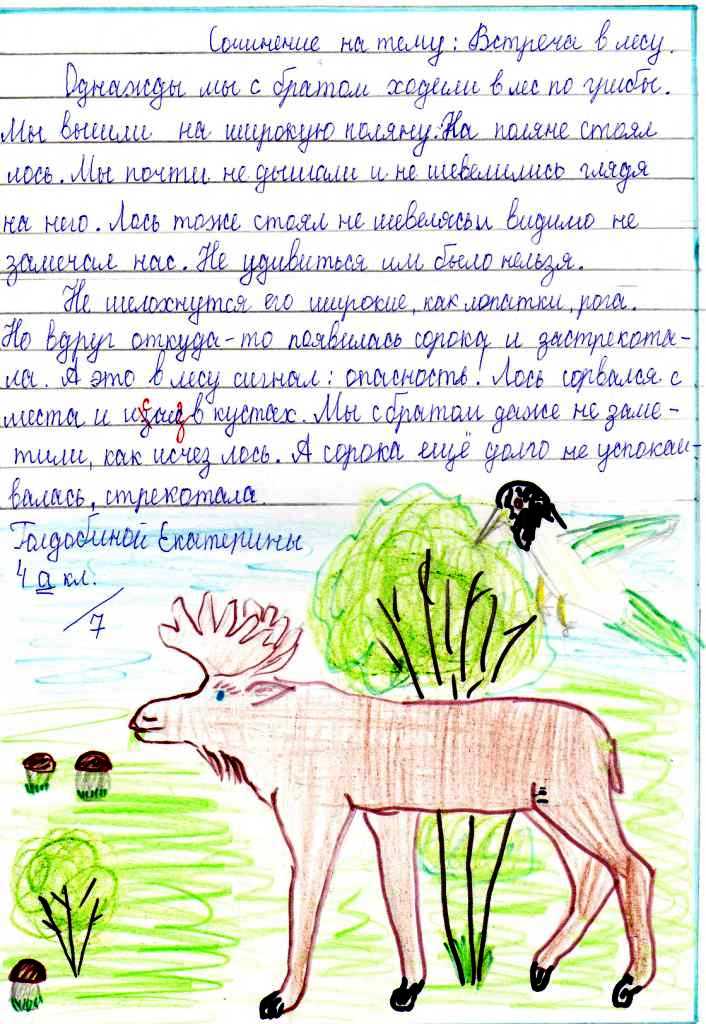 Сочинение на тему: Встреча в лесу.
Однажды мы с братом ходили в лес по грибы.
Мы вышли на широкую поляну. На поляне стоял
лось. Мы почти не дышали и не шевелились глядя
на него. Лось тоже стоял не шевелясь и видимо не
замечал нас. Не удивиться им было нельзя.
Не шелохнутся его широкие, как лопатки, рога.
Но вдруг откуда-то появилась сорока и застрекота-
ла. А это в лесу сигнал: опасность! Лось сорвался с
места и в кустах. Мы с братом даже не заме-
тили, как исчез лось. А сорока ещё долго не успокаи-
валась, стрекотала
Голдобиной Екатерины
4 а кл.
/7